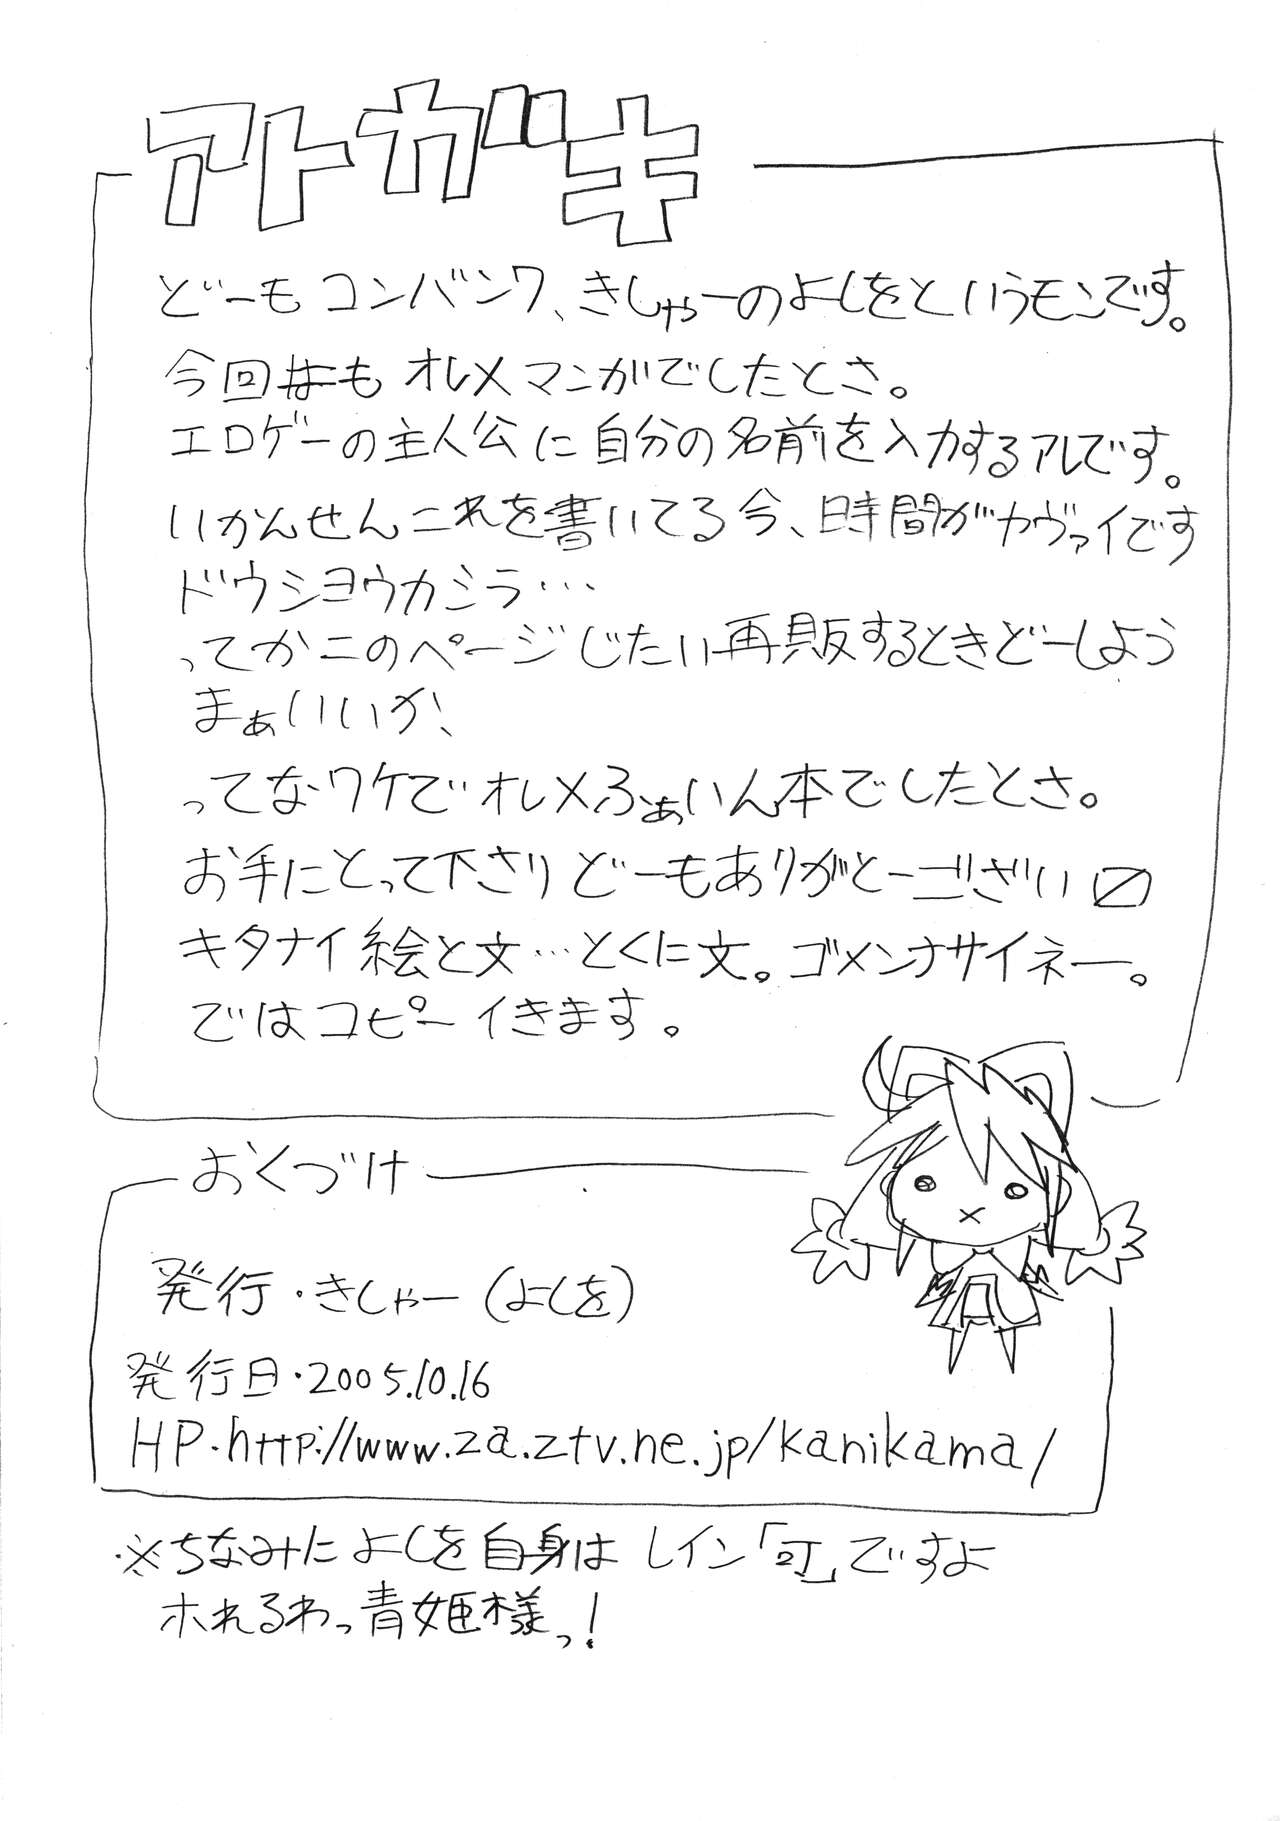 アトガキ
どーもコンバンワ、きしゃーのよしをというモンです。
今回もオレメマンガでしたとさ。
エロゲーの主人公に自分の名前を入力するアレです。
いかんせんこれを書いてる今、時間がヤヴァイです
ドウシヨウカシラ…
ってかこのページじたい再販するときどーしよう
まぁいいか、
ってなワケでオレメふぁいん本でしたとさ。
お手にとって下さりどーもありがとーござい〼
キタナイ絵と文…とくに文。ゴメンナサイネー。
ではコピーイきます。
おくづけ
発行・きしゃー(よしを)
発行日・2005.10.16
HP・http://www.za.ztv.ne.jp/kanikama/
・※ちなみによしを自身はレイン「」ですよ
ホれるわっ青姫様っ!